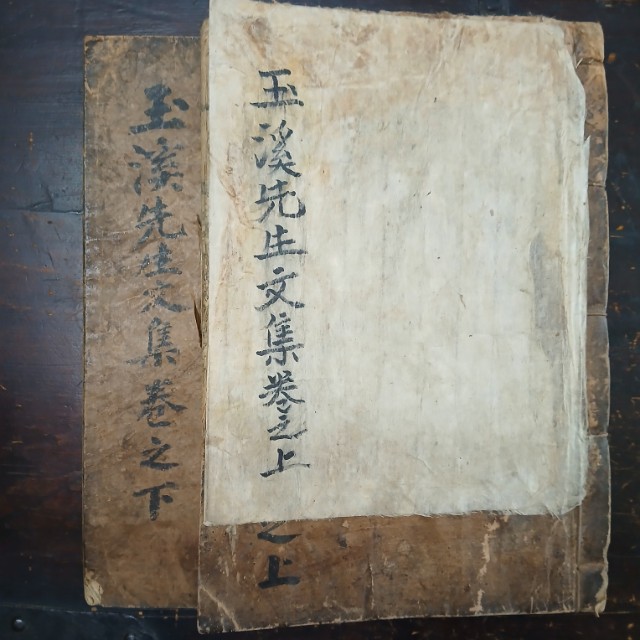 玉溪先生文集卷之上
之上
玉溪先生文集卷之下